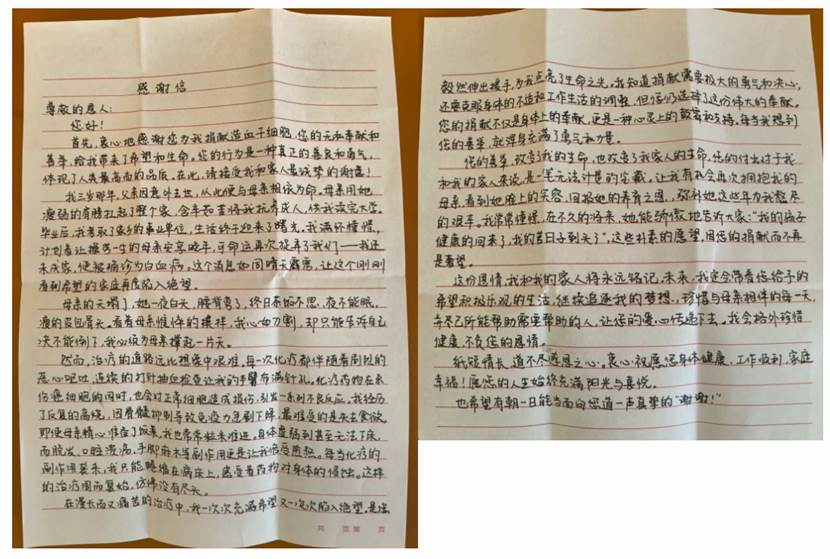 感谢信
尊敬的恩人:
您好!
首先,衷心地感谢您为我捐献造血干细胞,您的无私奉献和
善举,给我带来了希望和生命。您的行为是一种真正的善良和勇气,
体现了人类最高尚的品质。在此,请接受我和家人最诚挚的谢意!
我三岁那年,父亲因意外去世,从此便与母亲相依为命。母亲用她
瘦弱的肩膀扛起了整个家,含辛茹苦将我抚养成人,供我读完大学。
毕业后,我考取了家乡的事业单位,生活终于迎来了曙光。我满怀憧憬,
计划着让操劳一生的母亲安享晚年,可命运再次捉弄了我们——我还
未成家,便被确诊为白血病,这个消息如同晴天霹雳,让这个刚刚
看到希望的家庭再度陷入绝望。
母亲的天塌了,她一夜白头,腰背弯了,终日茶饭不思,夜不能眠,
瘦的皮包骨头。看着母亲憔悴的模样,我心如刀割,却只能告诉自己
决不能倒下,我必须为母亲撑起一片天。
然而,治疗的道路远比想象中艰难,每一次化疗都伴随着剧烈的
恶心呕吐,连续的打针抽血检查让我的手臂布满针孔。化疗药物在杀
伤癌细胞的同时,也会对正常细胞造成损伤,引发一系列不良反应,我经历
了反复的高烧,因骨髓抑制导致免疫力急剧下降,最难受的是失去食欲,
即便母亲精心准备了饭菜,我也常常难以进,身体虚弱到甚至无法下床,
而脱发、口腔溃疡、手脚麻木等副作用更是让我倍受煎熬。每当化疗的
副作用袭来,我只能蜷缩在病床上,感受着药物对身体的侵蚀。这样
的治疗周而复始,仿佛没有尽头。
在漫长而又痛苦的治疗中,我一次次充满希望又一次次陷入绝望。是您
共 页 第 页
毅然伸出援手,为我点亮了生命之光。我知道捐献需要极大的勇气和决心,
还要克服身体的不适和工作生活的调整,但您仍选择了这份伟大的奉献。
您的捐献不仅是身体上的奉献,更是一种心灵上的鼓舞和支持,每当我想到
您的善举,就浑身充满了勇气和力量。
您的善举,改变了我的生命,也改变了我家人的生命。您的付出对于我
和我的家人来说,是一笔无法计量的宝藏,让我有机会再次拥抱我的
母亲,看到她脸上的笑容,回报她的养育之恩,弥补她这些年为我熬尽
的艰辛。我常常憧憬,在不久的将来,她能骄傲地告诉大家:“我的孩子
健康的回来了,我的苦日子到头了”,这些朴素的愿望,因您的捐献而不再
是奢望。
这份恩情,我和我的家人将永远铭记,未来,我定会带着您给予的
希望积极乐观的生活,继续追逐我的梦想,珍惜与母亲相伴的每一天,
并尽己所能帮助需要帮助的人,让您的爱心传递下去。我会格外珍惜
健康,不负您的恩情。
纸短情长,道不尽感恩之心。衷心祝愿您身体健康、工作顺利、家庭
幸福!愿您的人生始终充满阳光与喜悦。
也希望有朝一日能当面向您道一声真挚的“谢谢!”